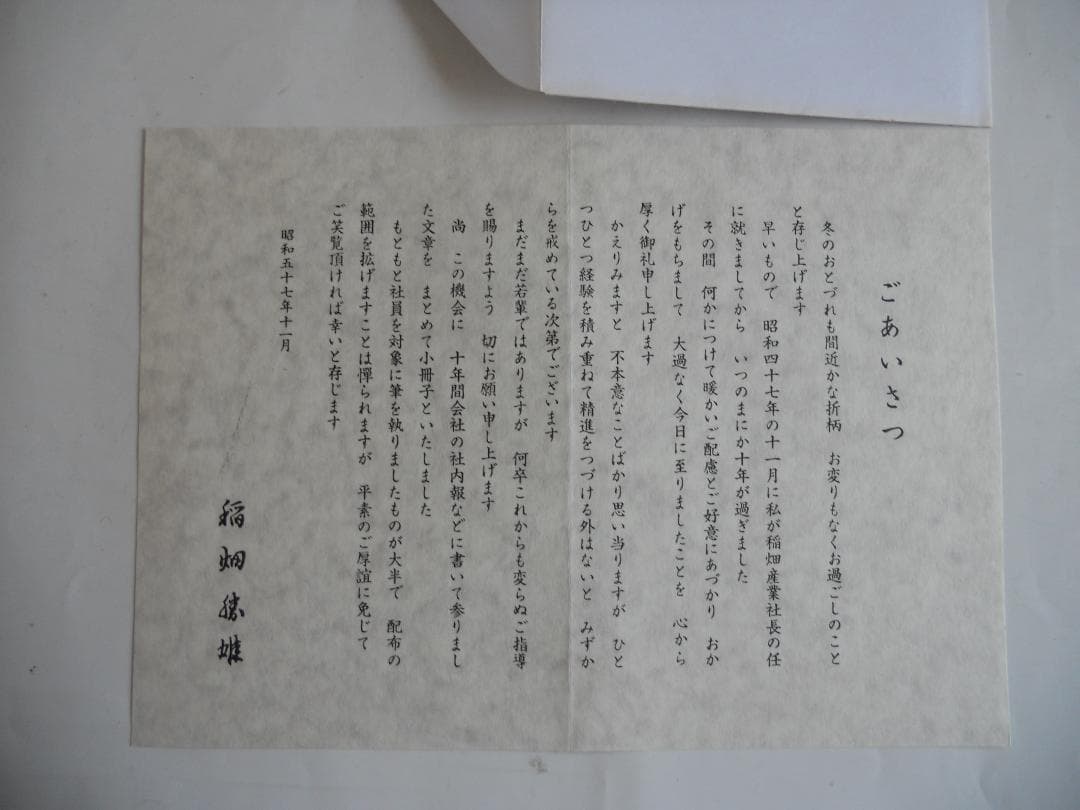 ごあいさつ
冬のおとづれも間近かな折柄　お変りもなくお過ごしのこと
と存じ上げます
早いもので　昭和四十七年の十一月に私が稲畑産業社長の任
に就きましてから　いつのまにか十年が過ぎました
その間　何かにつけて暖かいご配慮とご好意にあづかり　おか
げをもちまして　大過なく今日に至りましたことを　心から
厚く御礼申し上げます
かえりみますと　不本意なことばかり思い当りますが　ひと
つひとつ経験を積み重ねて精進をつづける外はないと　みずか
らを戒めている次第でございます
まだまだ若輩ではありますが　何卒これからも変らぬご指導
を賜りますよう　切にお願い申し上げます
尚　この機会に　十年間会社の社内報などに書いて参りまし
た文章を　まとめて小冊子といたしました
もともと社員を対象に筆を執りましたものが大半で　配布の
範囲を拡げますことは憚られますが　平素のご厚誼に免じて
ご笑覧頂ければ幸いと存じます
昭和五十七年十一月
稲畑勝雄